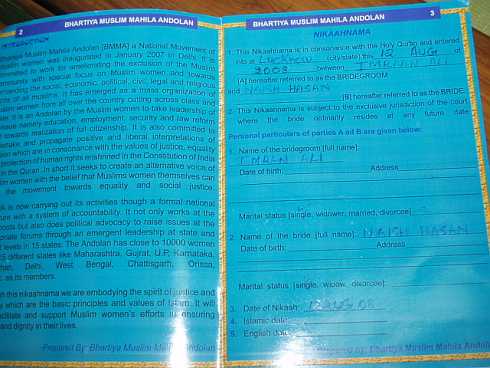 2 BHARTIYA MUSLIM MAHILA ANDOLAN
INTRODUCTION
Muslim Mahila Andolan [BMMA] a National Movement of
Muslim women was inaugurated in January 2007 in Delhi. It is
committed to work for ameliorating the exclusion of the
with special focus on Muslim women and towards
the social, economic, political, civil, legal and religious
of all muslims. It has emerged as a mass organization of
women from all over the country cutting across class and
It is an Andolan by the Muslim women to take leadership of
education, employment, security and law reform
towards realization of full citizenship. It is also committed to
and propagate positive and liberal interpretations of
which are in consonance with the values of justice, equality
protection of human rights enshrined in the Constitution of India
in the Quran. In short it seeks to create an alternative voice of
women with the belief that Muslims women themselves can
the movement towards equality and social justice.
is now carrying out its activities though a formal national
with a system of accountability. It not only works at the
but also does political advocacy to raise issues at the
forums through an emergent leadership at state and
levels in 15 states. The Andolan has close to 10000 women
different states like Maharashtra, Gujrat, U.P, Karnataka,
Delhi, West Bengal, Chattisgarh, Orissa,
as its members.
this nikaahnama we are embodying the spirit of justice and
which are the basic principles and values of Islam. It will
and support Muslim women's efforts in ensuring
and dignity in their lives.
Prepared By: Bhartiya Muslim Mahila Andolan
BHARTIYA MUSLIM MAHILA ANDOLAN 3
NIKAAHNAMA
1. This Nikaahnama is in consonance with the Holy Quran and entered
Lucknow [city/state] 12 AUG of
2008 between IMRAN ALI
[A] hereinafter referred to as the BRIDEGROOM
and NAISH HASAN
[B] hereinafter referred to as the BRIDE.
2. This Nikaahnama is subject to the exclusive jurisdiction of the court
where the bride ordinarily resides at any future date
Personal particulars of parties A and B are given below:
1. Name of the bridegroom [full name]:
IMRAN ALI
Date of birth: Address
Marital status [single, widower, married, divorcee]
2. Name of the bride [full name]: NAISH HASAN
Date of birth: Address
Marital status [single, widow, divorcee]:
3. Date of Nikaah: 12 AUG 08
4. Islamic date:
5. English date:
Prepared by: Bhartiya Muslim Mahila Andolan